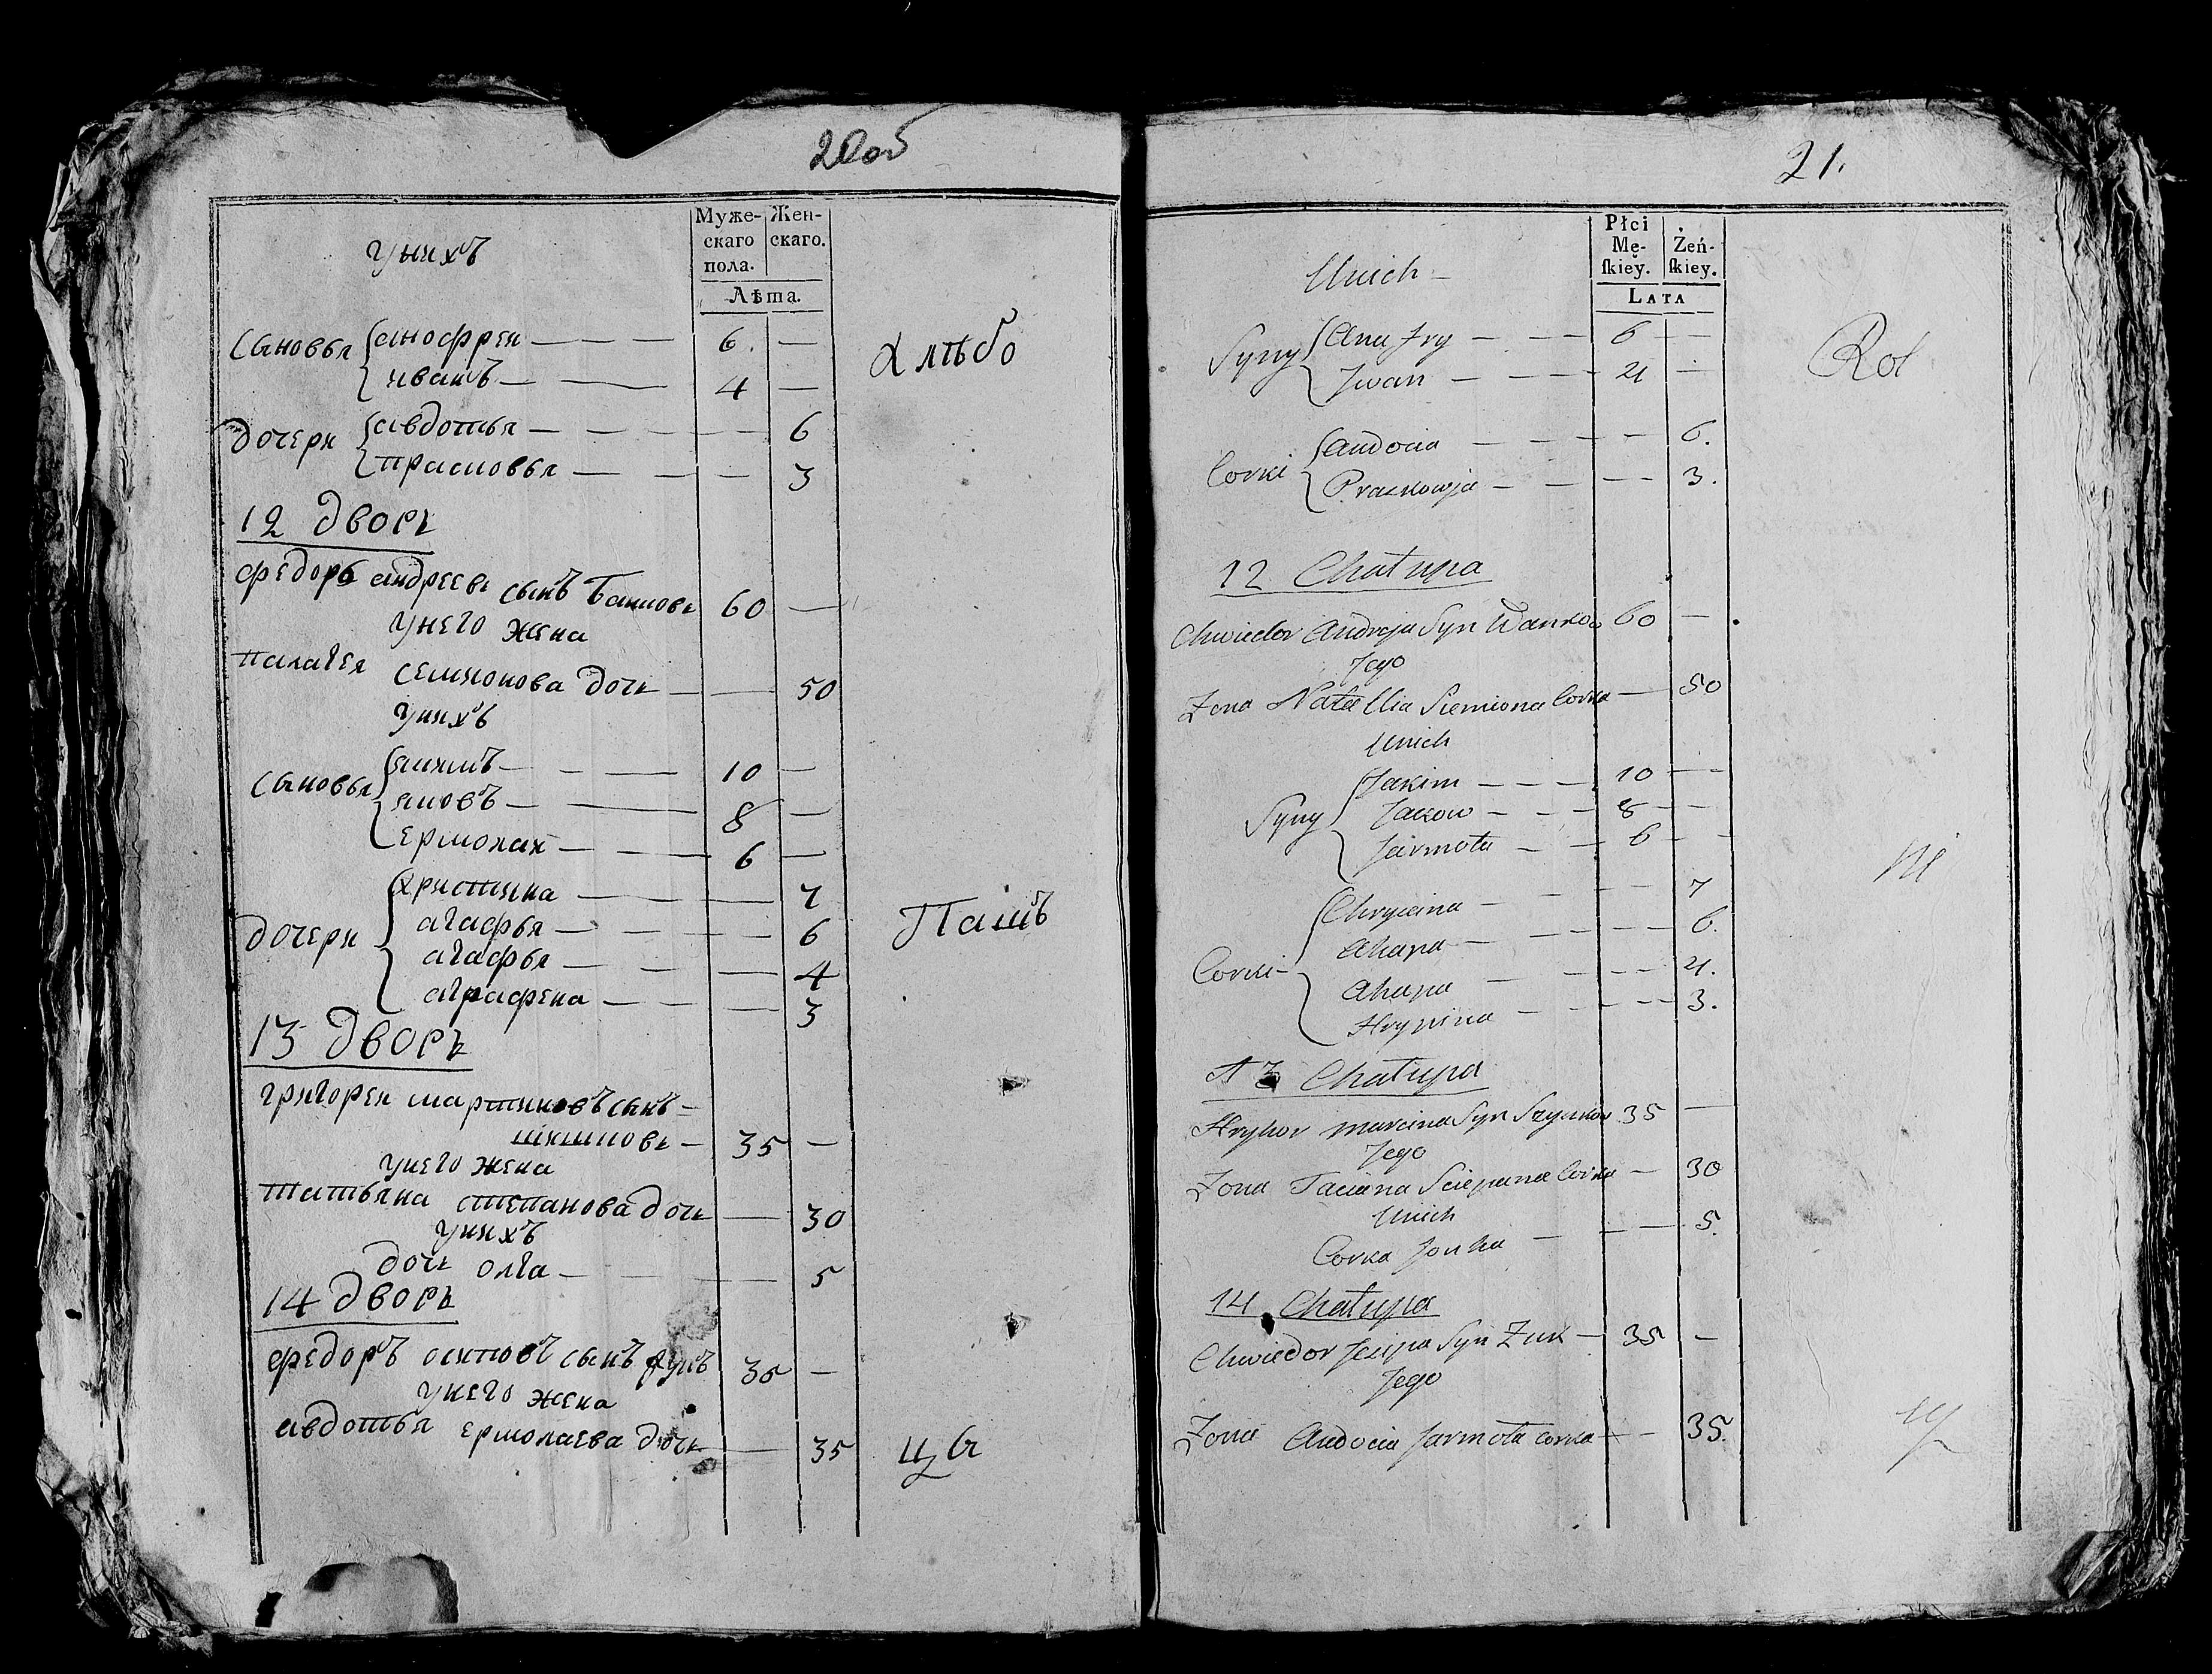 20об
Муже-
скаго
пола.
Жен-
скаго.
Лѣта.
унихъ
сыновья
анофрей — — — 6. —
иванъ — — 4 —
дочери
авдотья — — — — — 6
прасковья — — — — 3
Хлѣбо
12 дворъ
федоръ андреевъ сынъ Банковъ 60 —
унего жена
палагея семионова дочь — — 50
унихъ
сыновья
якимъ — — — 10 —
яковъ — — 8 —
ермолай — — — 6 —
дочери
христина — — — 7
агафья — — — — 6
агафья — — — 4
аграфена — — — 3
Пашъ
13 дворъ
григорей мартиновъ сынъ —
шишковъ — 35 —
унего жена
татьяна степанова дочь — 30
унихъ
дочь олга — — — 5
14 дворъ
федоръ осиповъ сынъ 35 —
унего жена
авдотья ермолаева дочь — 35
21.
Płci
Mę-
ſkiey.
Żeń-
ſkiey.
LATA
Unich —
Syny
Anafry — — — 6 — —
Jwan — — — — 4 —
Corki
Audocia — — — — 6.
Praskowja — — — — 3.
Rol
12 Chałupa
Chwiedor Andreja Syn Wankow 60 —
Jego
Zona Natallia Siemiona Corka — 50
Unich
Syny
Jakim — — — 10 — —
Jakow — — — 8 — —
Jarmoła — — 6 — —
Corki —
Chrycina — — — — 7
Ahapa — — — — — 6.
Ahapa — — — — 4.
Hrypina — — — — — 3.
13 Chałupa
Hryhor marcina Syn Szyszkow 35 —
Jego
Zona Taciana Sciepana Corka — 30
Unich
Corka — — — 5.
14 Chałupa
Chwiedor Jesipa Syn Zuk — 35 —
Jego
Zona Audocia Jarmoła corka — — 35.